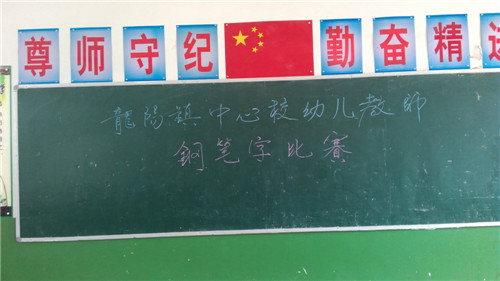 尊师守纪 勤奋精进
龍陽鎮中心校幼儿教師
鋼笔字比賽